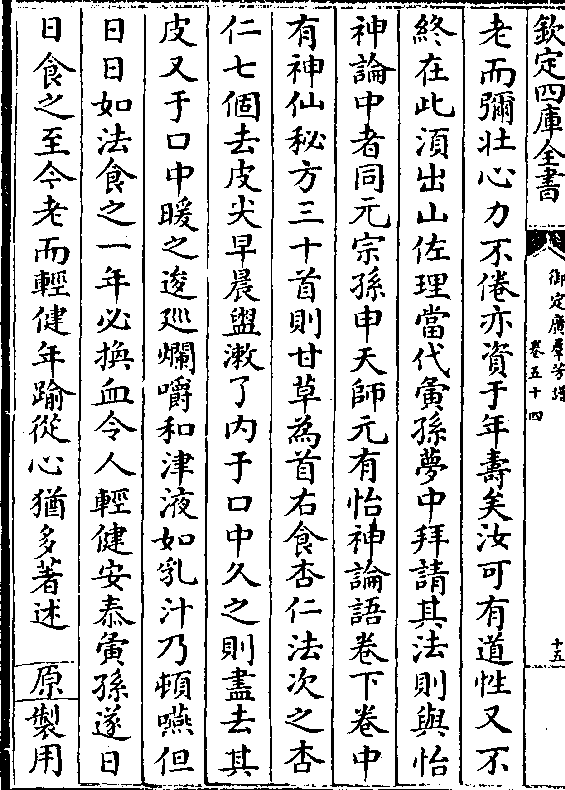 欽定四庫全書
御定廣羣芳譜
卷五十四
十五
老而彌壯心力不倦亦資于年壽矣汝可有道性又不
終在此須出山佐理當代寅孫夢中拜請其法則與怡
神論中者同元宗孫申天師元有怡神論語卷下卷中
有神仙秘方三十首則甘草為首右食杏仁法次之杏
仁七個去皮尖早晨盥漱了内于口中久之則盡去其
皮又于口中暖之逡廵爛嚼和津液如乳汁乃頓嚥但
日日如法食之一年必換血令人輕健安泰寅孫遂日
日食之至今老而輕健年踰從心猶多著述　原製用